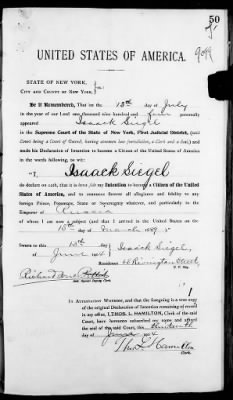 50
UNITED STATES OF AMERICA.
STATE OF NEW YORK,
CITY AND COUNTY OF NEW YORK,
Be it Remembered, That on the 13th day of July
in the year of our Lord one thousand nine hundred and four personally
appeared Isaack Siegel
in the Supreme Court of the State of New York, First Judicial District, (said
Court being a Court of Record, having common law jurisdiction, a Clerk and a Seal) and
made his Declaration of Intention to become a Citizen of the United States of America
in the words following, to wit:
"I, Isaack Siegel
do declare on oath, that it is bona fide my Intention to become a Citizen of the United
States of America, and to renounce forever all allegiance and fidelity to any
foreign Prince, Potentate, State or Sovereignty whatever, and particularly to the
Emperor of Russia
of whom I am now a subject (and that I arrived in the United States on the
10th day of March 1889."
Sworn to this
day of
Isaack Siegel,
Residence Rivington Street,
N. Y. City.
Deputy Clerk.
IN ATTESTATION WHEREOF, and that the foregoing is a true copy
of the original Declaration of Intention remaining of record
in my office, I, THOS. L. HAMILTON, Clerk of the said
Court, have hereunto subscribed my name and affixed
the seal of the said Court, this
day of 1904
Thos L Hamilton
Clerk.